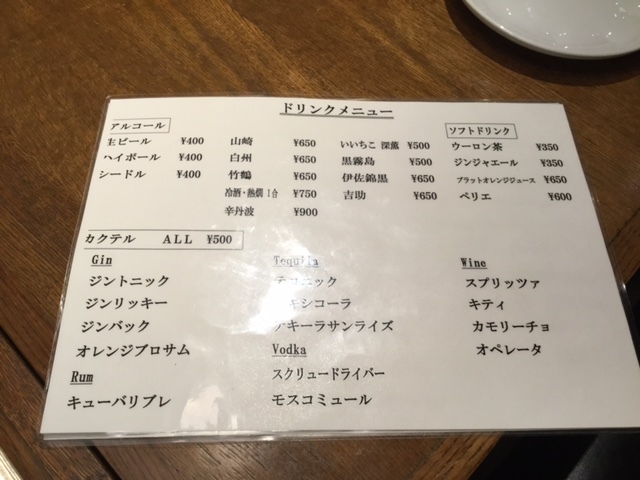 ドリンクメニュー
アルコール
生ビール ¥400
ハイボール ¥400
シードル ¥400
山崎 ¥650
白州 ¥650
竹鶴 ¥650
冷酒・熱燗 1合 ¥750
辛丹波 ¥900
いいちこ 深薫 ¥500
黒霧島 ¥500
伊佐錦黒 ¥650
吉助 ¥650
ソフトドリンク
ウーロン茶 ¥350
ジンジャエール ¥350
ブラットオレンジジュース ¥650
ペリエ ¥600
カクテル ALL ¥500
Gin
ジントニック
ジンリッキー
ジンバック
オレンジブロサム
Rum
キューバリブレ
Tequila
テコニック
キシコーラ
テキーラサンライズ
Vodka
スクリュードライバー
モスコミュール
Wine
スプリッツァ
キティ
カモリーチョ
オペレータ